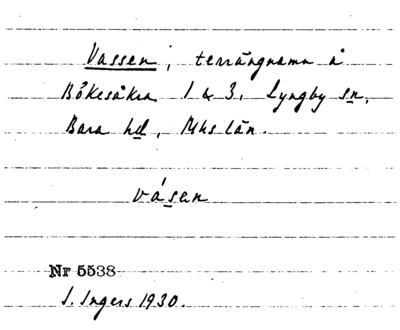 Vassen, terrängnamn å
Bökesåkra 1 & 3, Lyngby sn,
Bara hd, Mhs län.
våsen
Nr 5538
I. Ingers 1930.